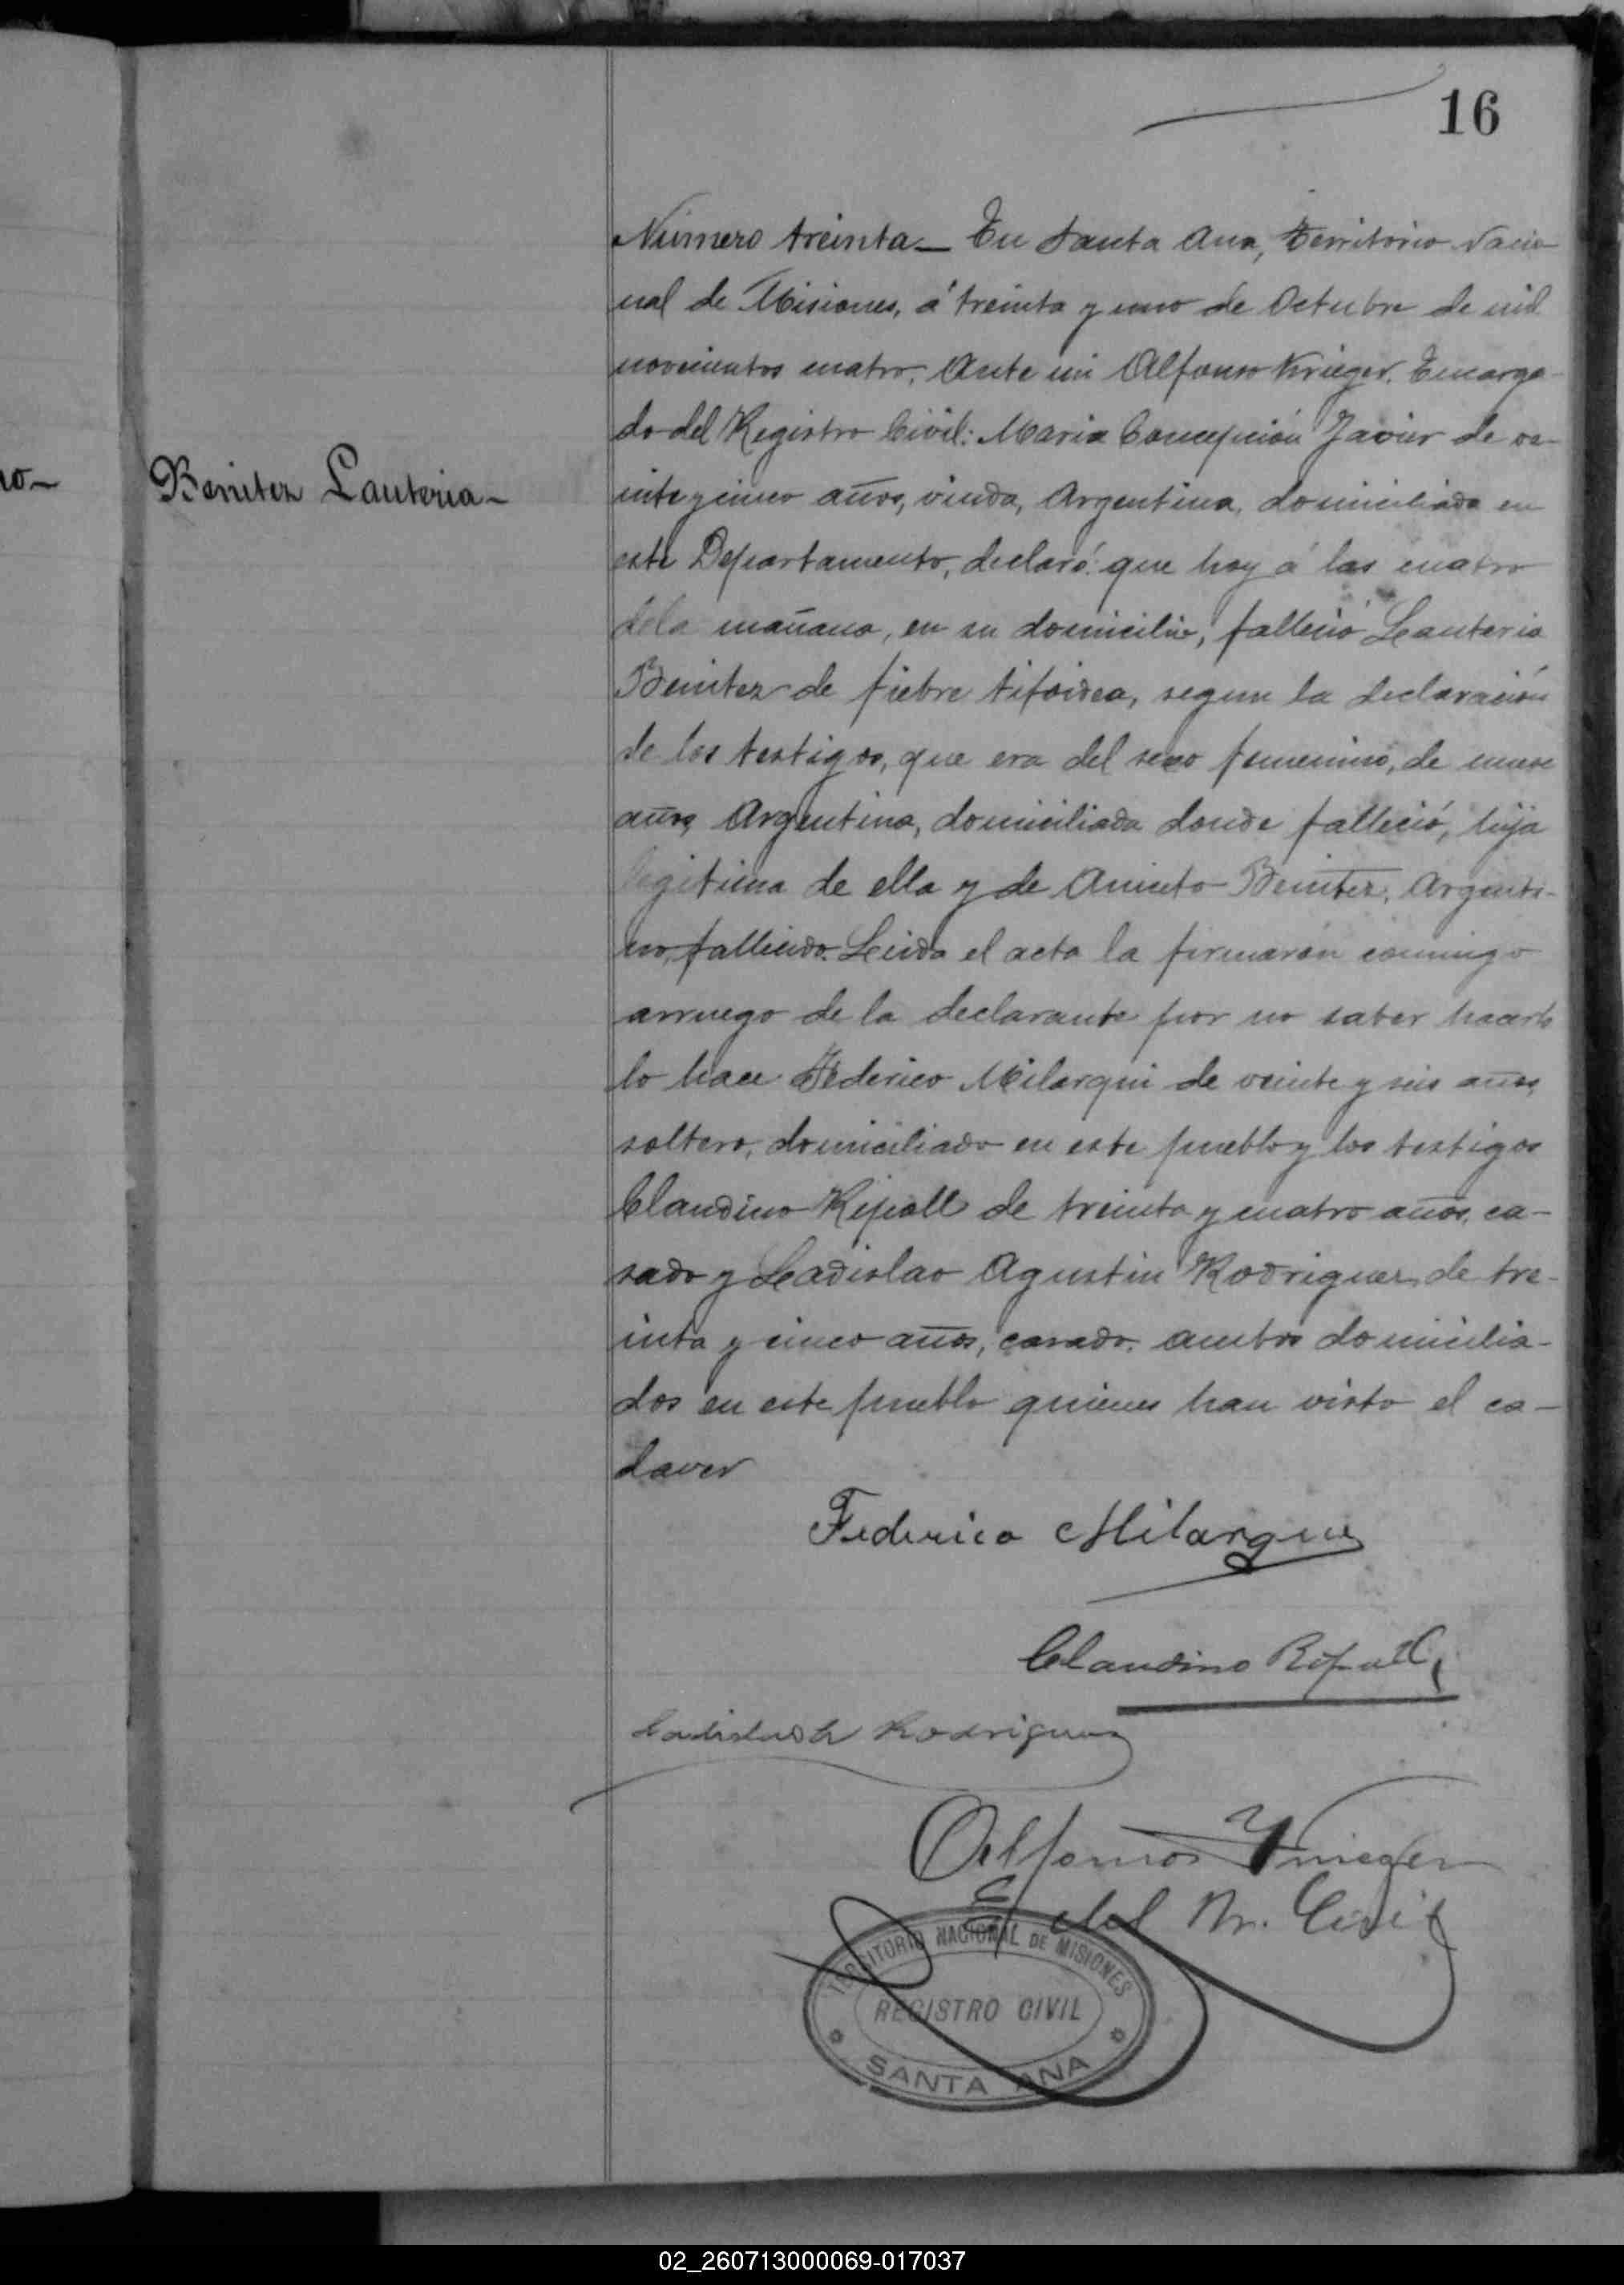 16
Número treinta— En Santa Ana, Territorio Nacio-
nal de Misiones, á treinta y uno de Octubre de mil
novecientos cuatro, Ante mi Alfonso Krieger, Encarga-
do del Registro Civil: Maria Concepción Javier de ve-
inte y cinco años, viuda, Argentina, domiciliada en
no—
Benitez Lauteria—
este Departamento, declaró: que hoy á las cuatro
de la mañana, en su domicilio, falleció Lauteria
Benitez de fiebre tifoidea, segun la declaración
de los testigos, que era del sexo femenino, de nueve
años, Argentina, domiciliada donde falleció, hija
legitima de ella y de Aniceto Benitez, Argenti-
no, fallecido. Leida el acta la firmarón conmigo
arruego de la declarante por no saber hacerlo
lo hace Federico Milarqui de veinte y seis años,
soltero, domiciliado en este pueblo y los testigos
Claudino Ripoll de treinta y cuatro años, ca-
sado y Ladislao Agustin Rodriguez, de tre-
inta y cinco años, casado, ambos domicilia-
dos en este pueblo quienes han visto el ca-
daver
Federico Milarqui
Claudino Ripoll
Ladislao A Rodriguez
Alfonso Krieger
E. del R. Civil
TERRITORIO NACIONAL DE MISIONES
REGISTRO CIVIL
SANTA ANA
02_260713000069-017037